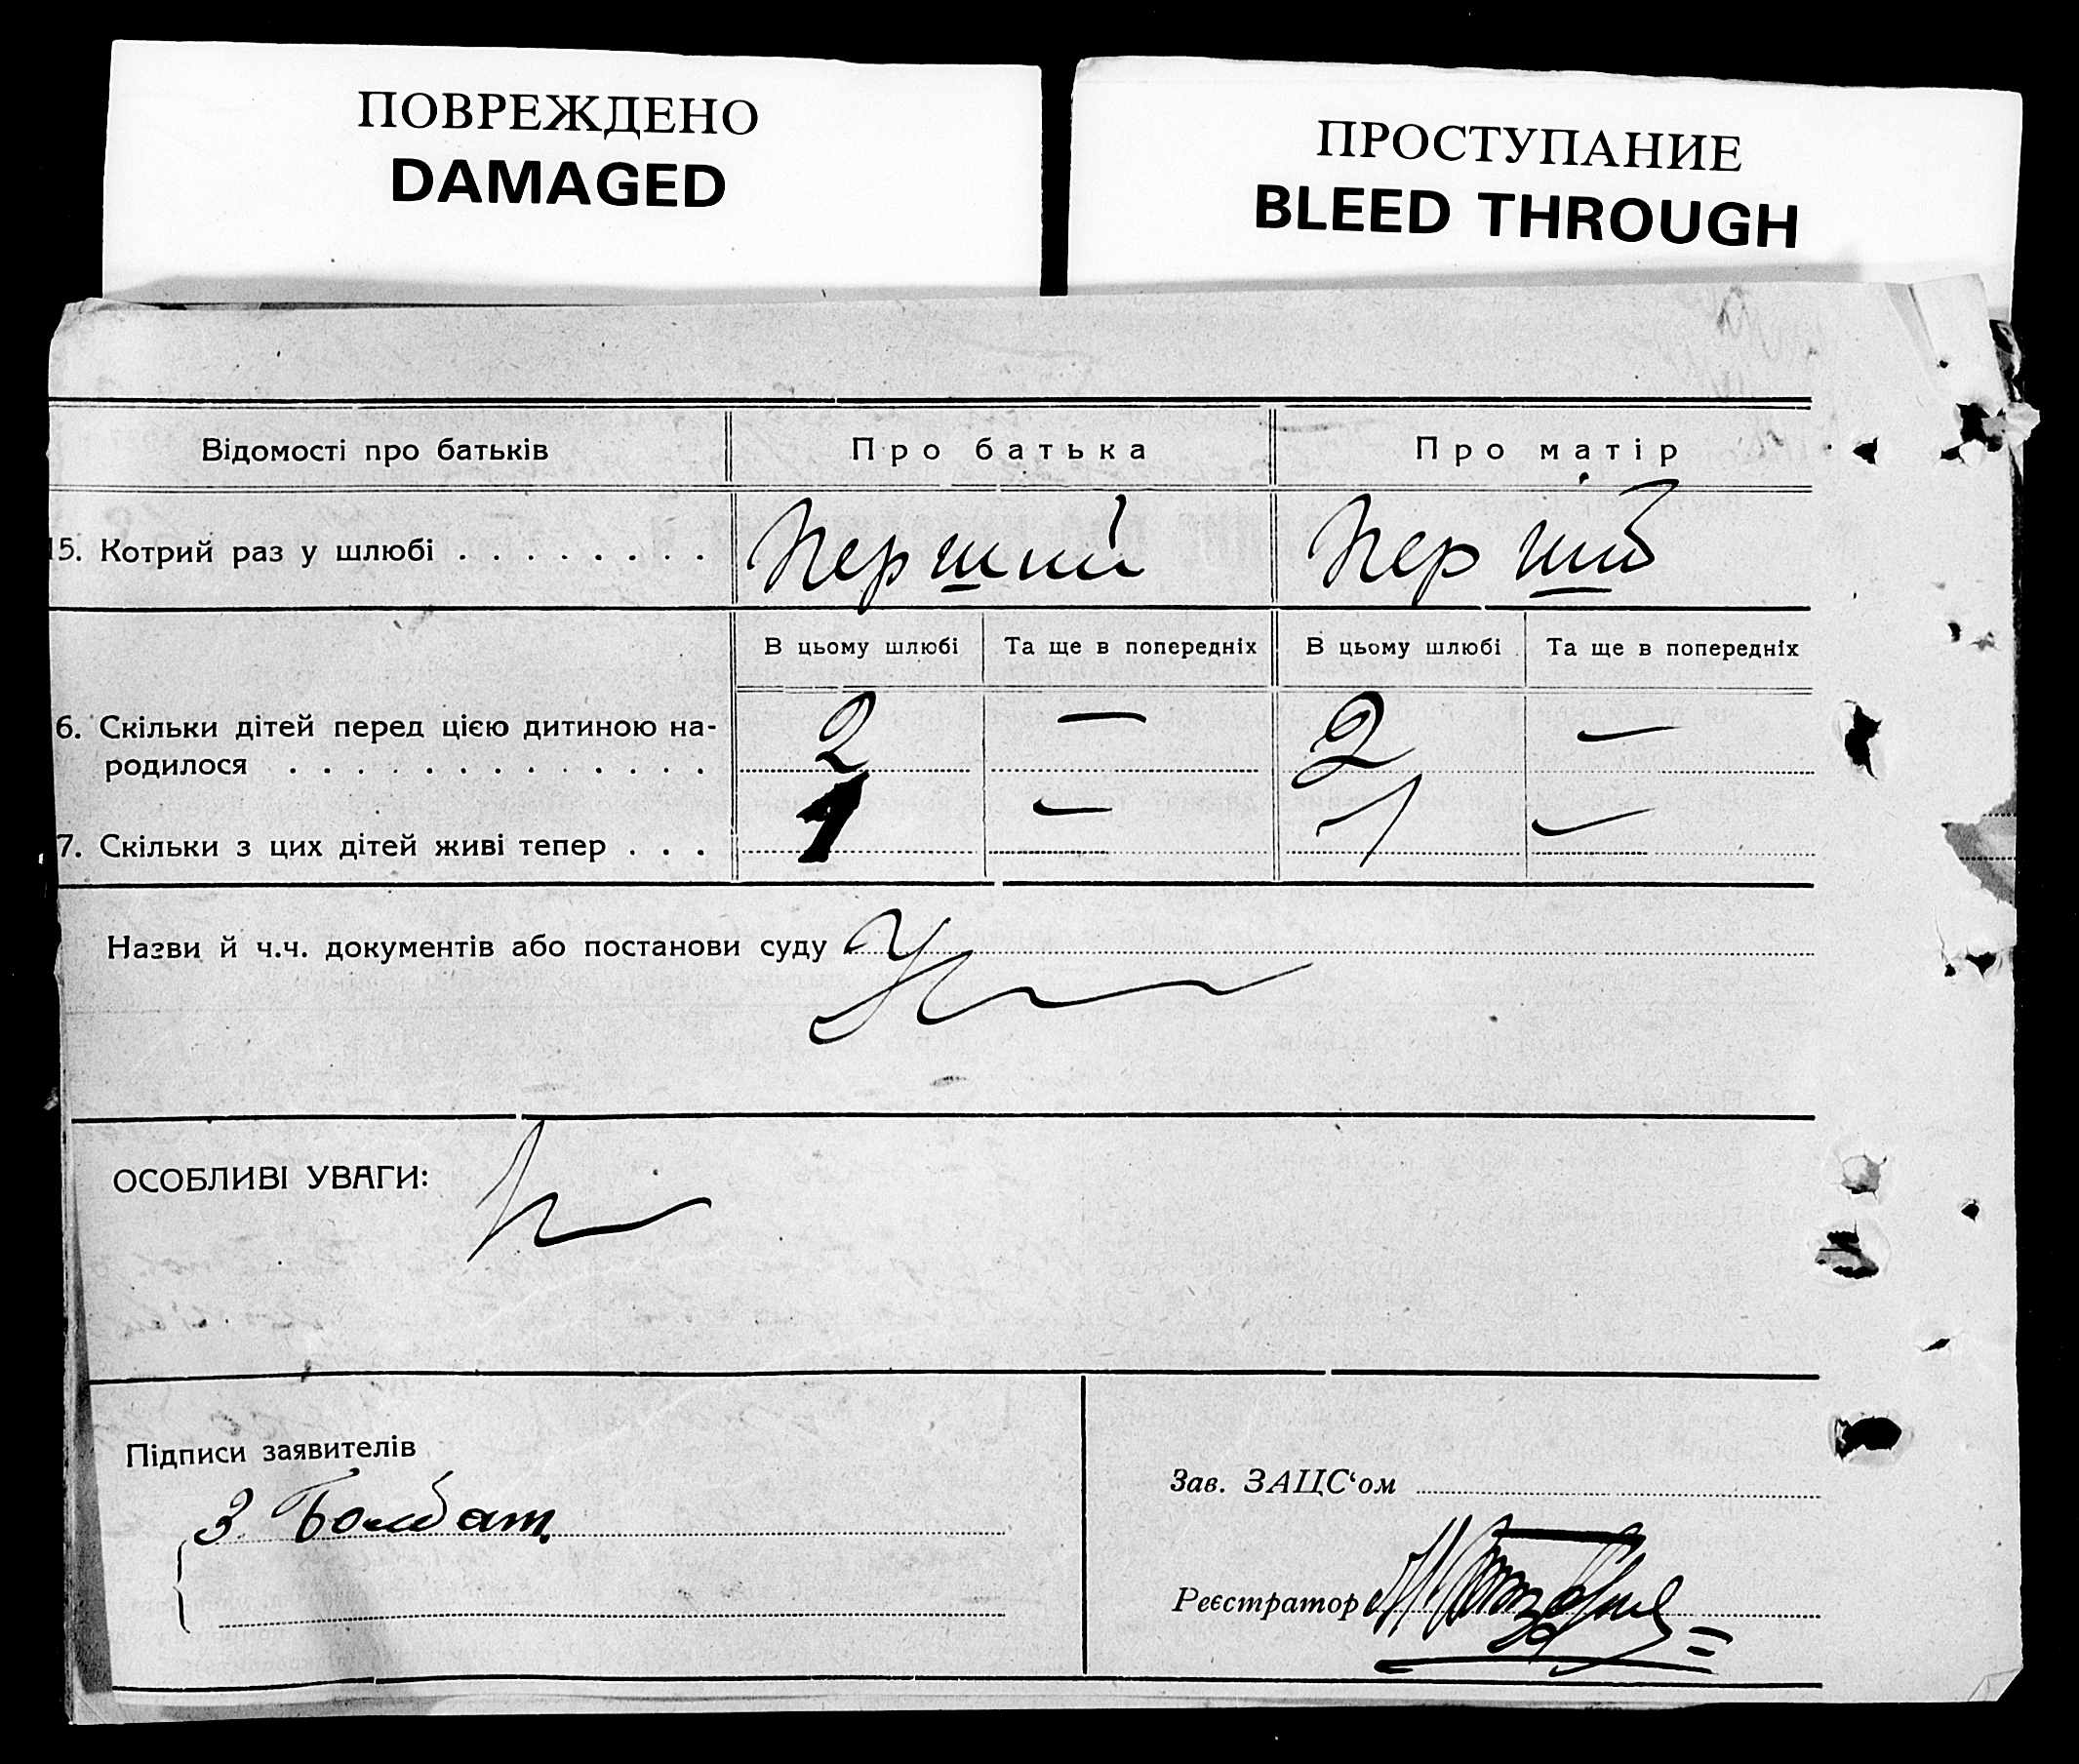 ПОВРЕЖДЕНО
DAMAGED
ПРОСТУПАНИЕ
BLEED THROUGH
Відомості про батьків
Про батька
Про матір
15. Котрий раз у шлюбі . . . . . . . .
Перший
Перший
В цьому шлюбі
Та ще в попередніх
В цьому шлюбі
Та ще в попередніх
6. Скільки дітей перед цією дитиною на-
родилося . . . . . . . . . . . . .
2
—
2
—
7. Скільки з цих дітей живі тепер . . .
1
—
1
—
Назви й ч.ч. документів або постанови суду
ОСОБЛИВІ УВАГИ:
Підписи заявителів
З
Зав. ЗАЦС‘ом
Реєстратор